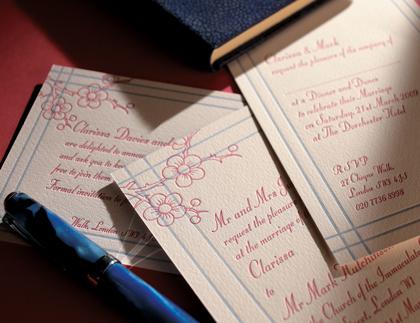 Clarissa Davies and
are delighted to
and ask you to
free to join them
Formal invitations to
Walk, London SW3
Clarissa & Mark
request the pleasure of the company of
at a Dinner and Dance
to celebrate their Marriage
on Saturday 21st March 2009
at The Dorchester Hotel
RSVP
27 Cheyne Walk,
London SW3 4JS
020 7736 8998
Mr and Mrs
request the pleasure
at the marriage of
Clarissa
to
Mr Mark Hutchinson
Church of the Immaculate
Street, London W1